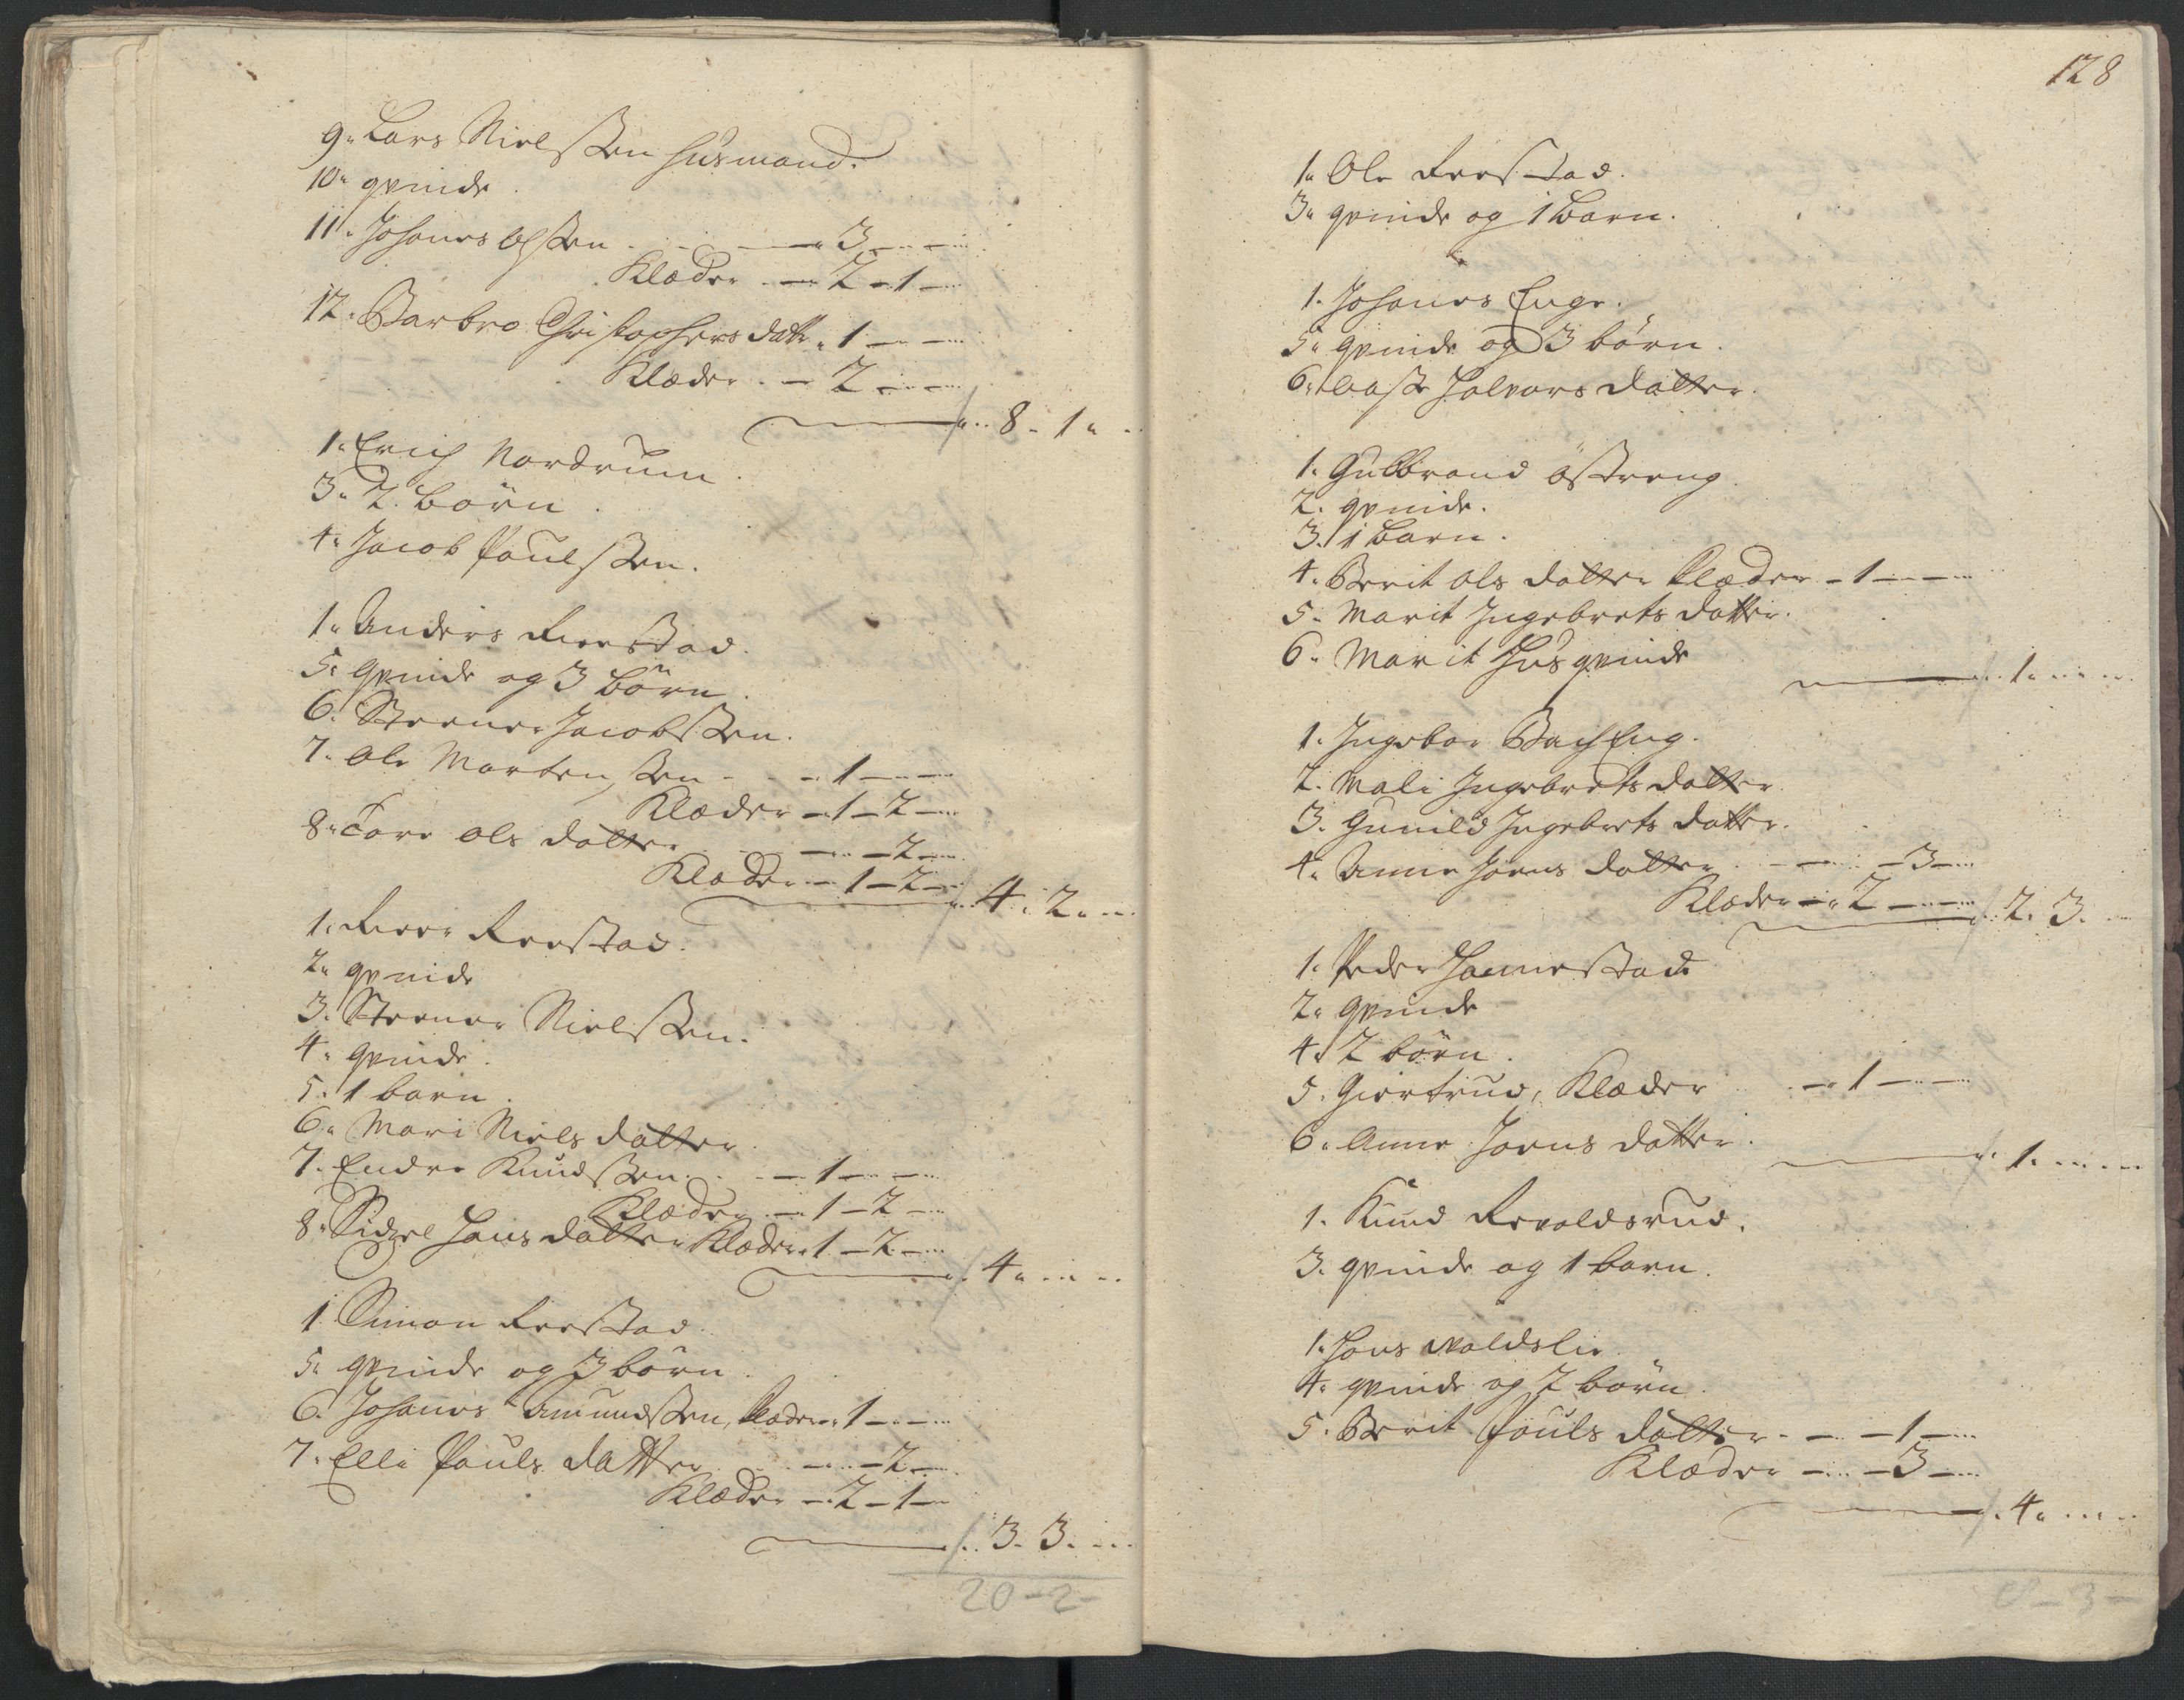 9. Lars Nielssen huusmand.
10. qvinde.
11. Johanes Olssen - - 3 - -
Klæder - 2 - 1 -
12. Barbro Christophers datter 1 - -
Klæder - 2 - -
8 - 1 -
1. Erich Nordrum.
3. 2 börn.
4. Jacob Poulssen.
1. Anders Reestad.
5. qvinde og 3 börn.
6. Steener Jacobssen.
7. Ole Mortenssen - - 1 - -
Klæder - 1 - 2 -
8. Tore Ols datter - - 2 -
Klæder - 1 - 2 -
4. 2. -
1. Reestad.
2. qvinde
3. Steener Nielssen.
4. qvinde.
5. 1 barn.
6. Mari Niels datter.
7. Endre Knudssen - 1 - -
Klæder - 1 - 2 -
8. Sidzel Hans datter Klæder 1 - 2 -
4. - -
1. Simon Reestad.
5. qvinde og 3 börn.
6. Johanes Amundssen, klæder 1 - -
7. Elli Pouls datter - - 2 -
Klæder - 2 - 1 -
3. 3. -
20 - 2 -
128
1. Ole Reestad.
3. qvinde og 1 barn.
1. Johanes Enge.
5. qvinde og 3 börn.
6. Aase Halvors datter.
1. Gulbrand Östreng.
2. qvinde.
3. 1 barn.
4. Berit Ols datter klæder - 1 - -
5. Marit Ingebrets datter.
6. Marit Huusqvinde
1. - -
1. Ingebor BachEng.
2. Mali Ingebrets datter.
3. Gunild Ingebrets datter.
4. Anne Joens datter - - 3 -
Klæder - 2 - -
2. 3. -
1. Peder Hannestad
2. qvinde
4. 2 börn.
5. Giertrud, Klæder - 1 - -
6. Anne Joens datter.
1. - -
1. Knud Revoldsrud.
3. qvinde og 1 barn.
1. Hans Woldslie.
4. qvinde og 2 börn.
5. Berit Pouls datter - - 1 -
Klæder - - 3 -
4. - -
8 - 3 -